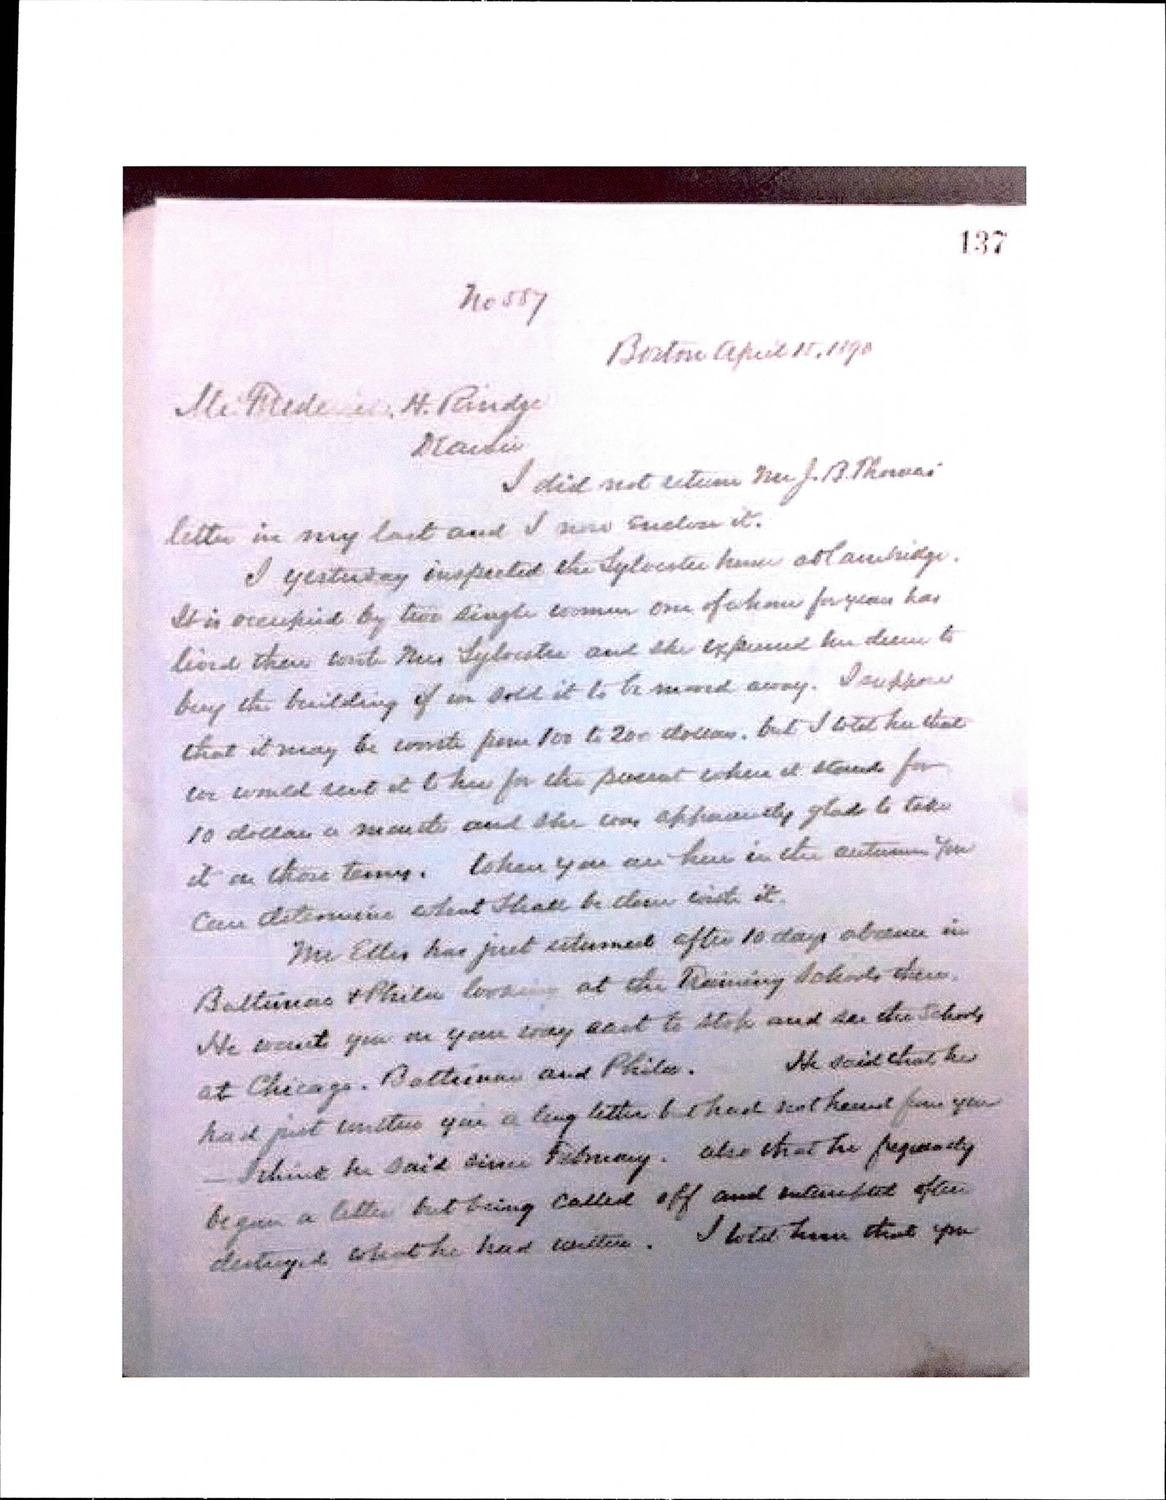 137
No 557
Boston April 15, 1890
Mr. Frederick H. Rindge
Dear Sir
I did not return Mr J. B. Thomas'
letter in my last and I now enclose it.
I yesterday inspected the Sylvester house at Cambridge.
It is occupied by two single women one of whom for years has
lived there with Mrs Sylvester and she expressed her desire to
buy the building if we sold it to be moved away. I suppose
that it may be worth from 100 to 200 dollars. but I told her that
we would rent it to her for the present where it stands for
10 dollars a month and she was apparently glad to take
it on those terms. When you are here in the autumn you
can determine what shall be done with it.
Mr Ellis has just returned after 10 days absence in
Baltimore & Phila looking at the Training Schools there.
He wants you on your way east to stop and see the Schools
at Chicago. Baltimore and Phila. He said that he
had just written you a long letter but had not heard from you
— I think he said since February. also that he frequently
began a letter but being called off and interrupted often
destroyed what he had written. I told him that you